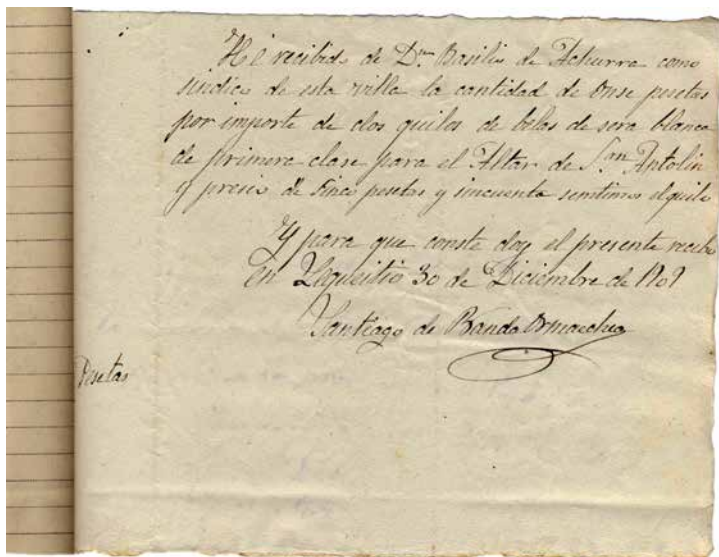 Hé recibido de Dn Basilio de Achurra como
sindico de esta villa la cantidad de onse pesetas
por importe de dos quilos de belas de sera blanca
de primera clase para el Altar de Sn Antolin
y presio de sinco pesetas y sincuenta sentimos el quilo
Y para que conste doy el presente recibo
en Lequeitio 30 de Diciembre de 1909
Santiago de
Pesetas